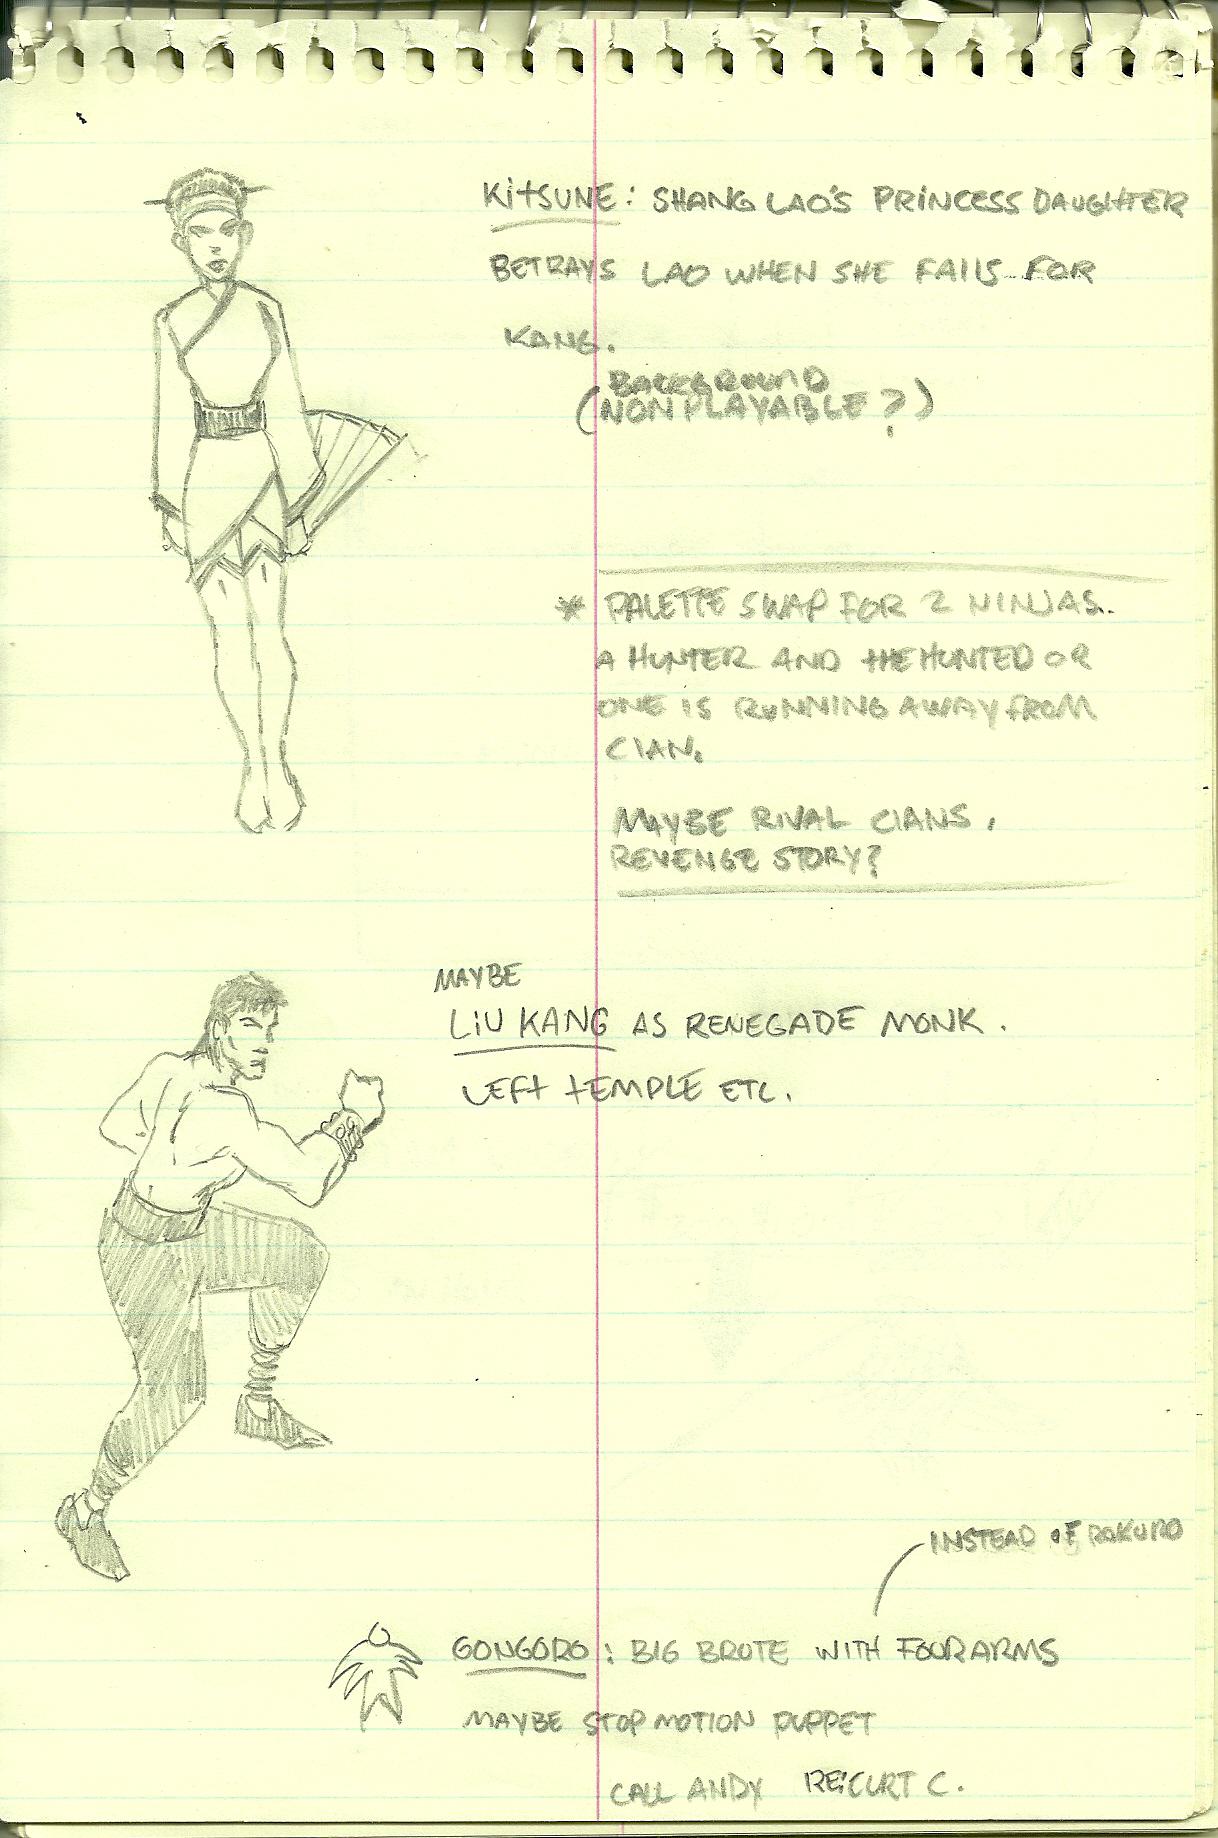 KITSUNE: SHANG LAO'S PRINCESS DAUGHTER
BETRAYS LAO WHEN SHE FALLS FOR
KANG.
BACKGROUND
(NON PLAYABLE?)
* PALETTE SWAP FOR 2 NINJAS..
A HUNTER AND THE HUNTED OR
ONE IS RUNNING AWAY FROM
CLAN.
MAYBE RIVAL CLANS.
REVENGE STORY?
MAYBE
LIU KANG AS RENEGADE MONK.
LEFT TEMPLE ETC.
INSTEAD OF ROKURO
GONGORO: BIG BRUTE WITH FOUR ARMS
MAYBE STOP MOTION PUPPET
CALL ANDY RE: CURT C.